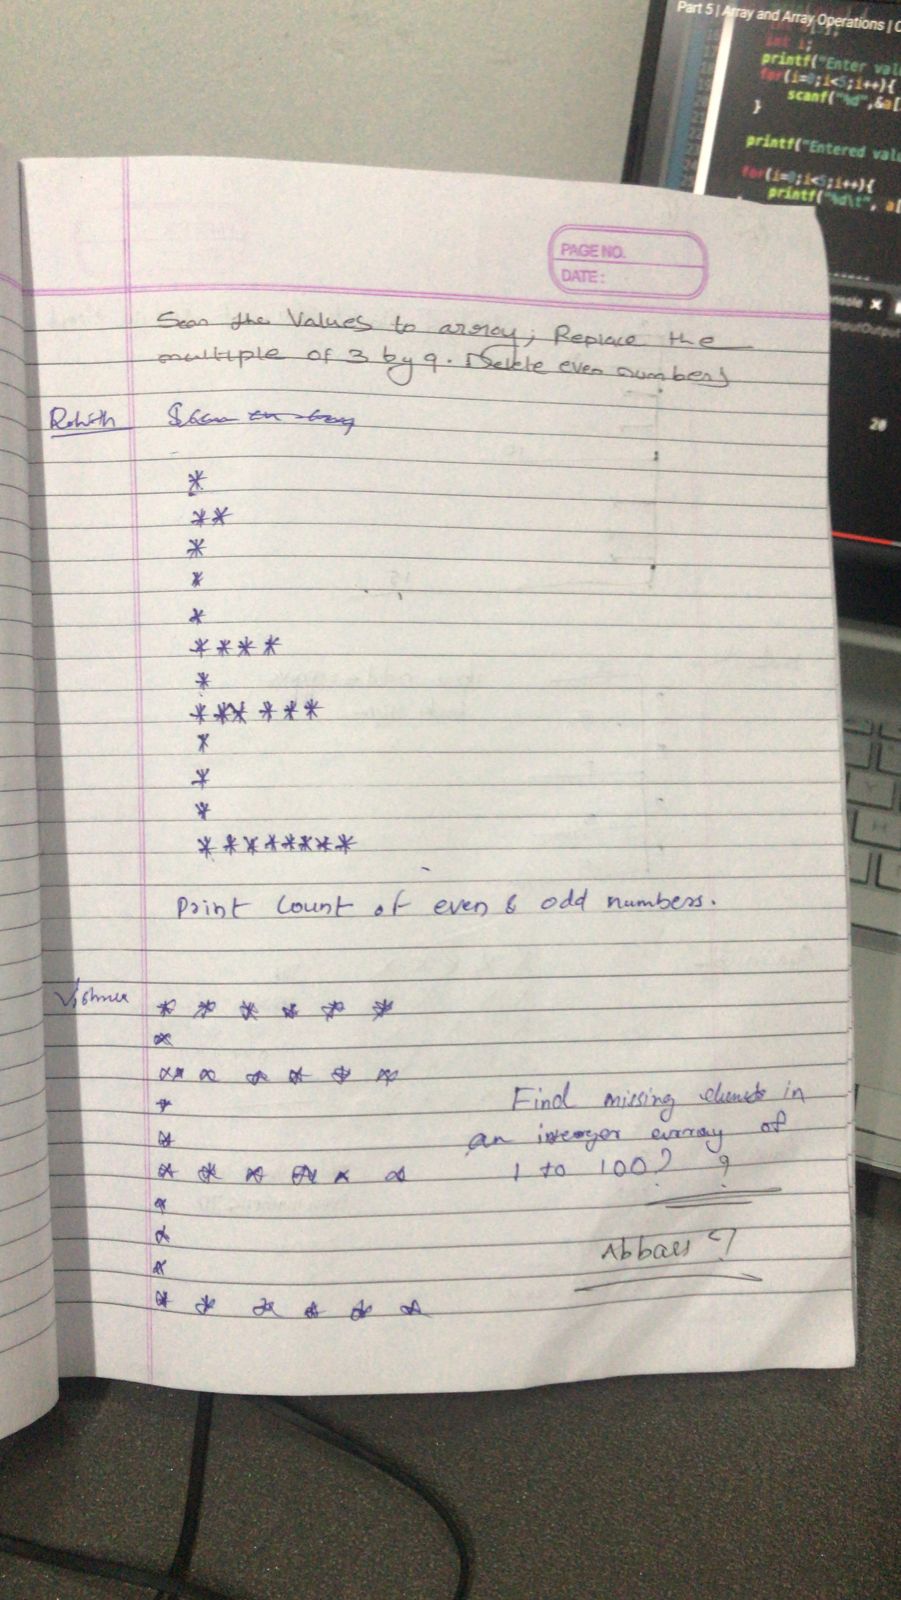 Part 5 | Array and Array Operations | C
int i;
printf("Enter val
for(i=0;i<5;i++){
scanf("%d",&a[
}
printf("Entered valu
for(i=0;i<5;i++){
printf("%d\t", a[
20
PAGE NO.
DATE:
Scan the Values to array, Replace the
multiple of 3 by 9. Delete even numbers
Rohith
*
**
*
*
*
****
*
******
*
*
*
********
Print Count of even & odd numbers.
Vishnu
* * * * * *
*
** * * * * *
*
*
* * * * * *
*
*
*
* * * * * *
Find missing elements in
an integer array of
1 to 100? ?
Abbas ?